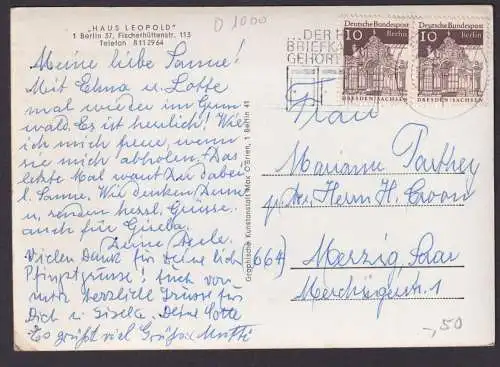 „HAUS LEOPOLD"
1 Berlin 37, Fischerhüttenstr. 113
Telefon 8112964
D 1000
Meine liebe Sanne!
Mit Edna u. Lotte
mal wieder im Grune
wald. Es ist herrlich! Wie
ich mich freue, wenn
sie mich abholen. Das
letzte Mal warst Du dabei
l. Sanne. Wir denken Deiner
u. senden herzl. Grüsse
auch für Gisela.
Deine
Vielen Dank für Deine lieb
Pfingstgrüsse! Euch von
mir herzliche Grüsse für
Dich u. Gisela. Deine Lotte
Es grüßt viel Mutti
Graphische Kunstanstalt Max O'Brien, 1 Berlin 41
...DER H
BRIEFKA
GEHÖRT
10
Deutsche Bundespost
Berlin
DRESDEN/SACHSEN
10
Deutsche Bundespost
Berlin
DRESDEN/SACHSEN
Frau
Marianne Parthey
Herrn H. Croon
(664) Merzig, Saar
Merchingerstr. 1
-,50